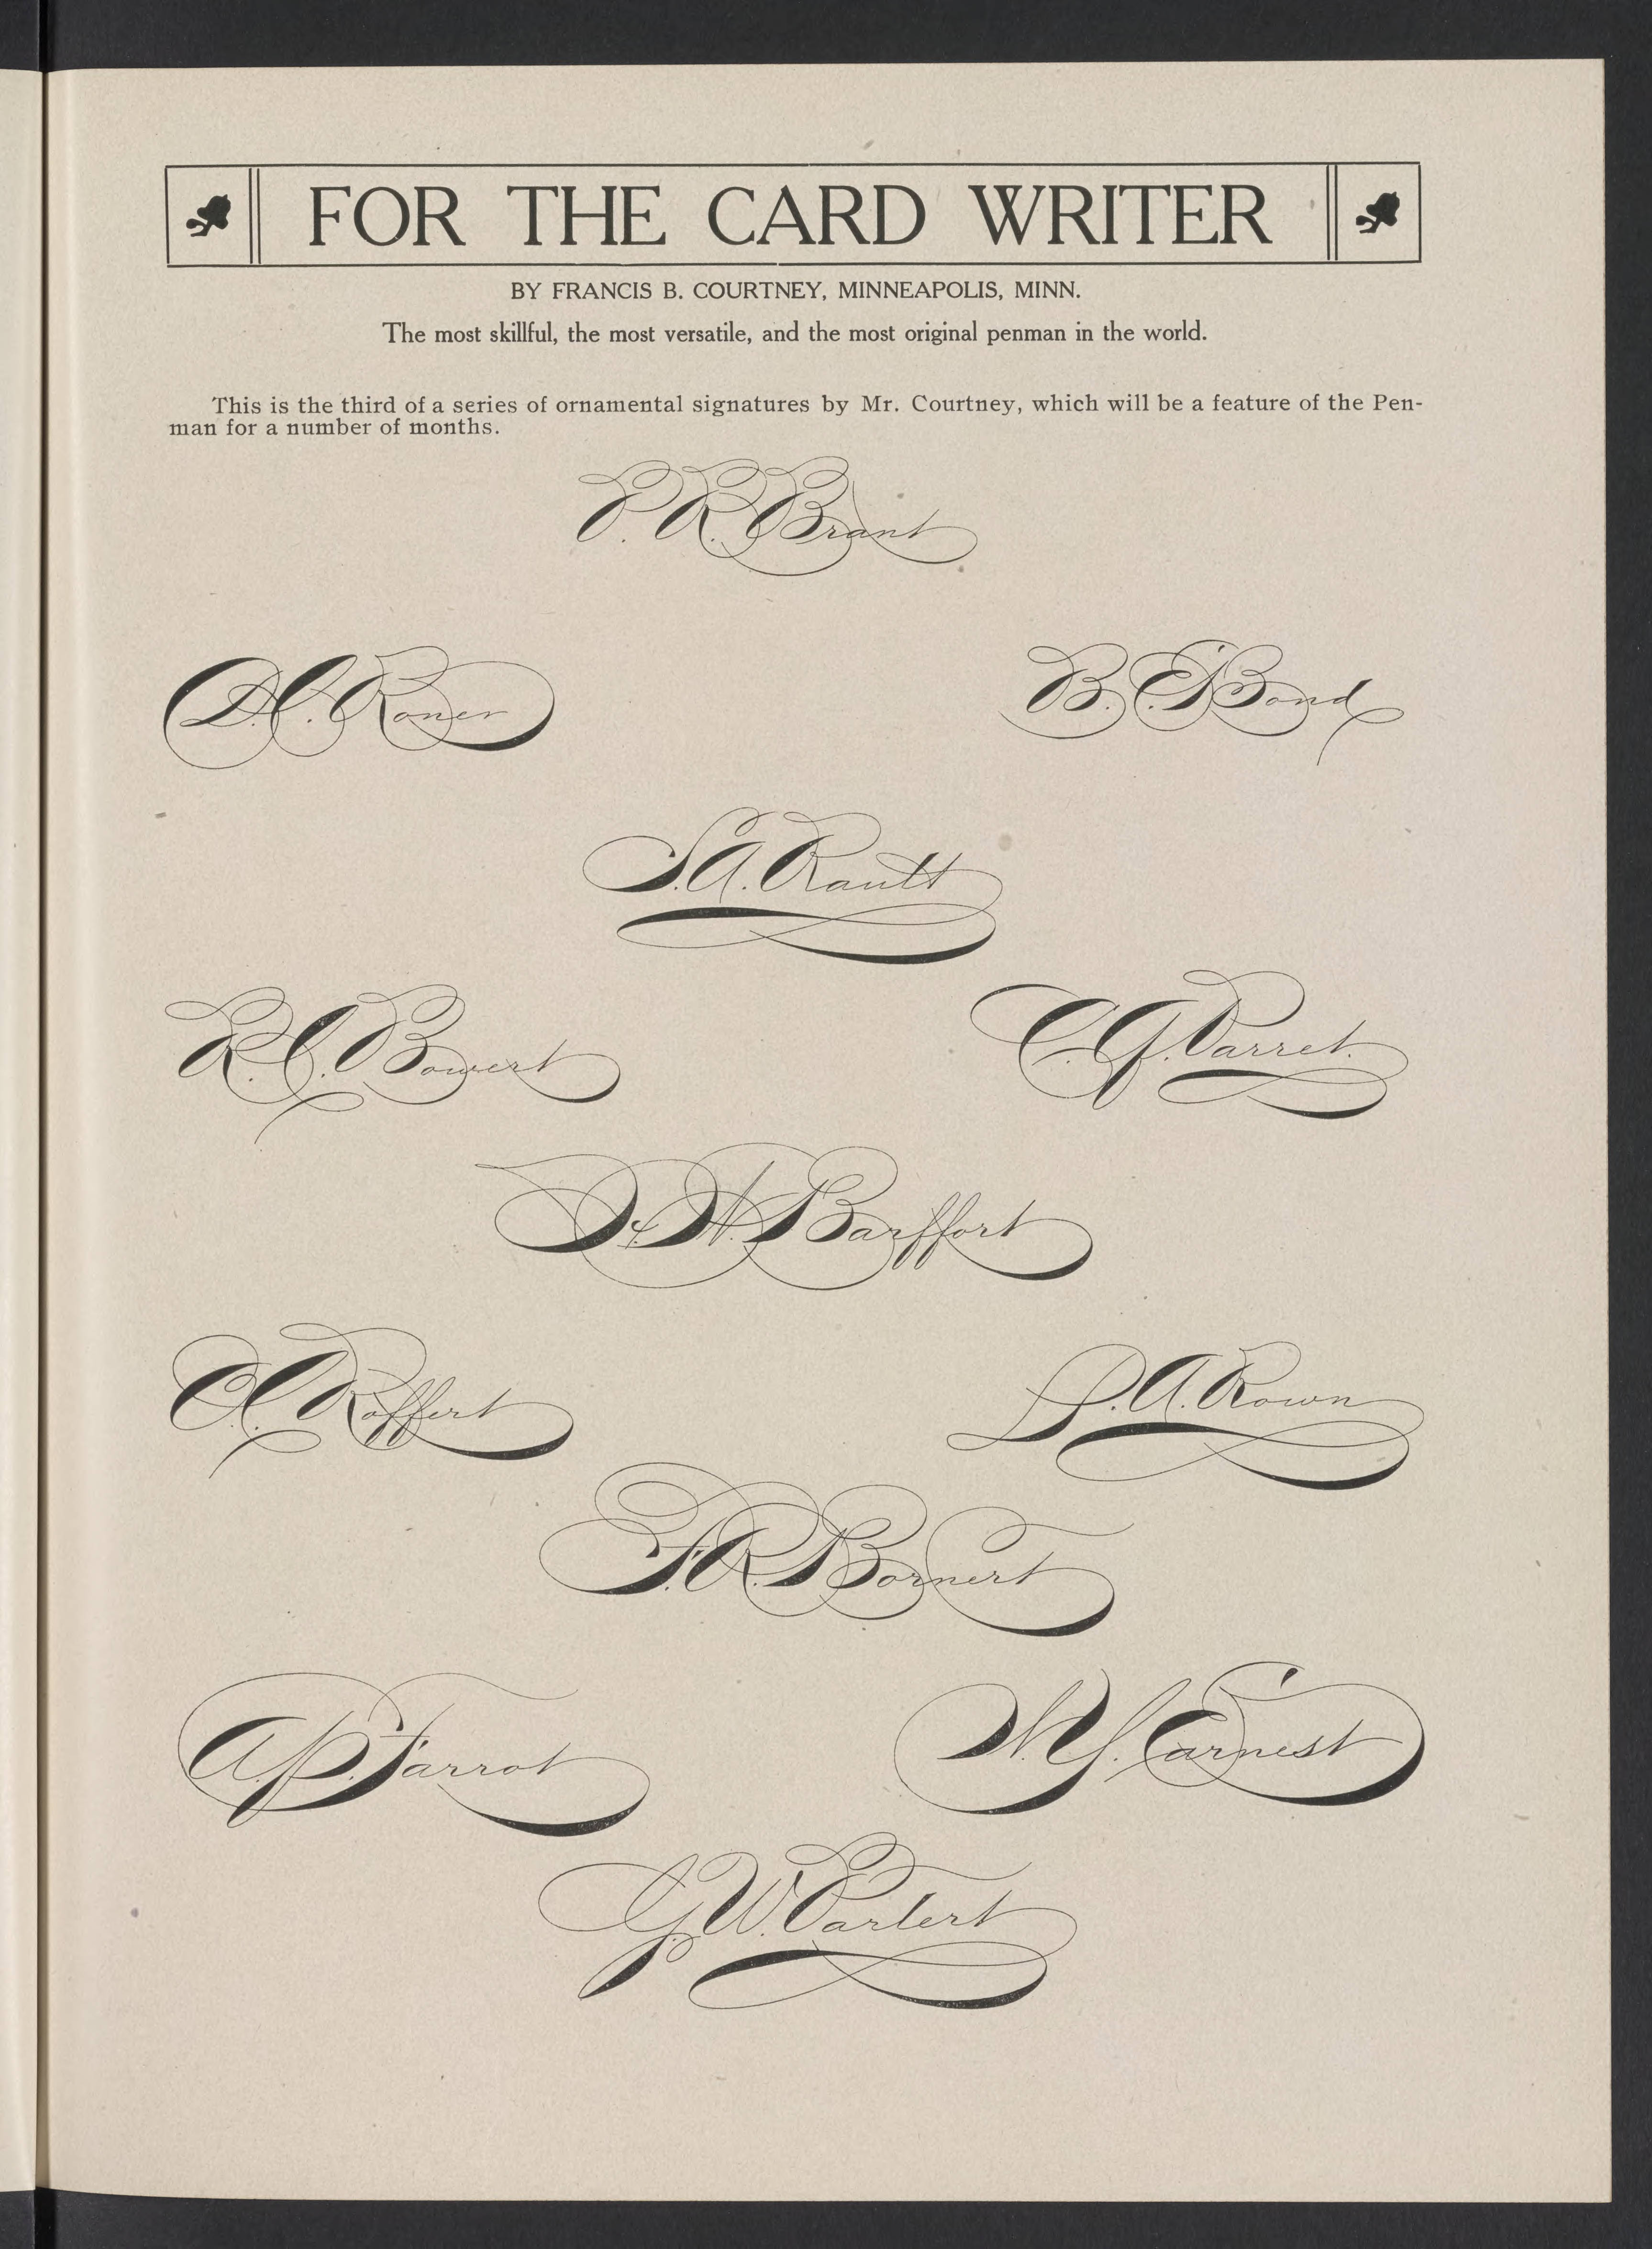 FOR THE CARD WRITER
BY FRANCIS B. COURTNEY, MINNEAPOLIS, MINN.
The most skillful, the most versatile, and the most original penman in the world.
This is the third of a series of ornamental signatures by Mr. Courtney, which will be a feature of the Pen-
man for a number of months.
P. R. Brant
D. C. Roner
B. E. Bond
S. A. Rautt
R. C. Bowert
C. G. Parret.
H. Barffort
C. C. Roffert
S. A. Rown
F. R. Bornert
A. P. Farrot
N. Y. Earnest
G. W. Parlert